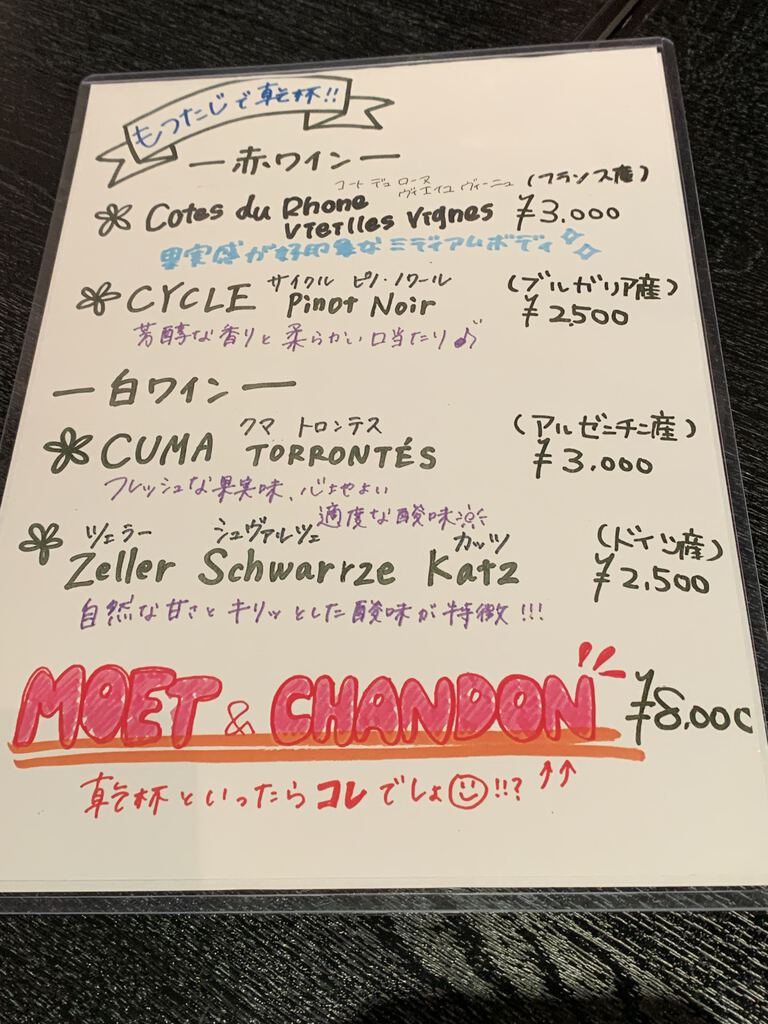 もつたじで乾杯!!
ー赤ワインー
コートデュローヌ
ヴィエイユ ヴィーニュ
(フランス産)
Cotes du Rhone
Vieilles Vignes ¥3.000
果実感が好印象なミディアムボディ
サイクル ピノ・ノワール (ブルガリア産)
CYCLE Pinot Noir ¥2.500
芳醇な香りと柔らかい口当たり♪
ー白ワインー
クマ トロンテス (アルゼンチン産)
CUMA TORRONTÉS ¥3.000
フレッシュな果実味、心地よい
適度な酸味
ツェラー シュヴァルツェ カッツ (ドイツ産)
Zeller Schwarrze Katz ¥2,500
自然な甘さとキリッとした酸味が特徴!!!
MOET & CHANDON ¥8.000
乾杯といったらコレでしょ☺!!? ↑↑